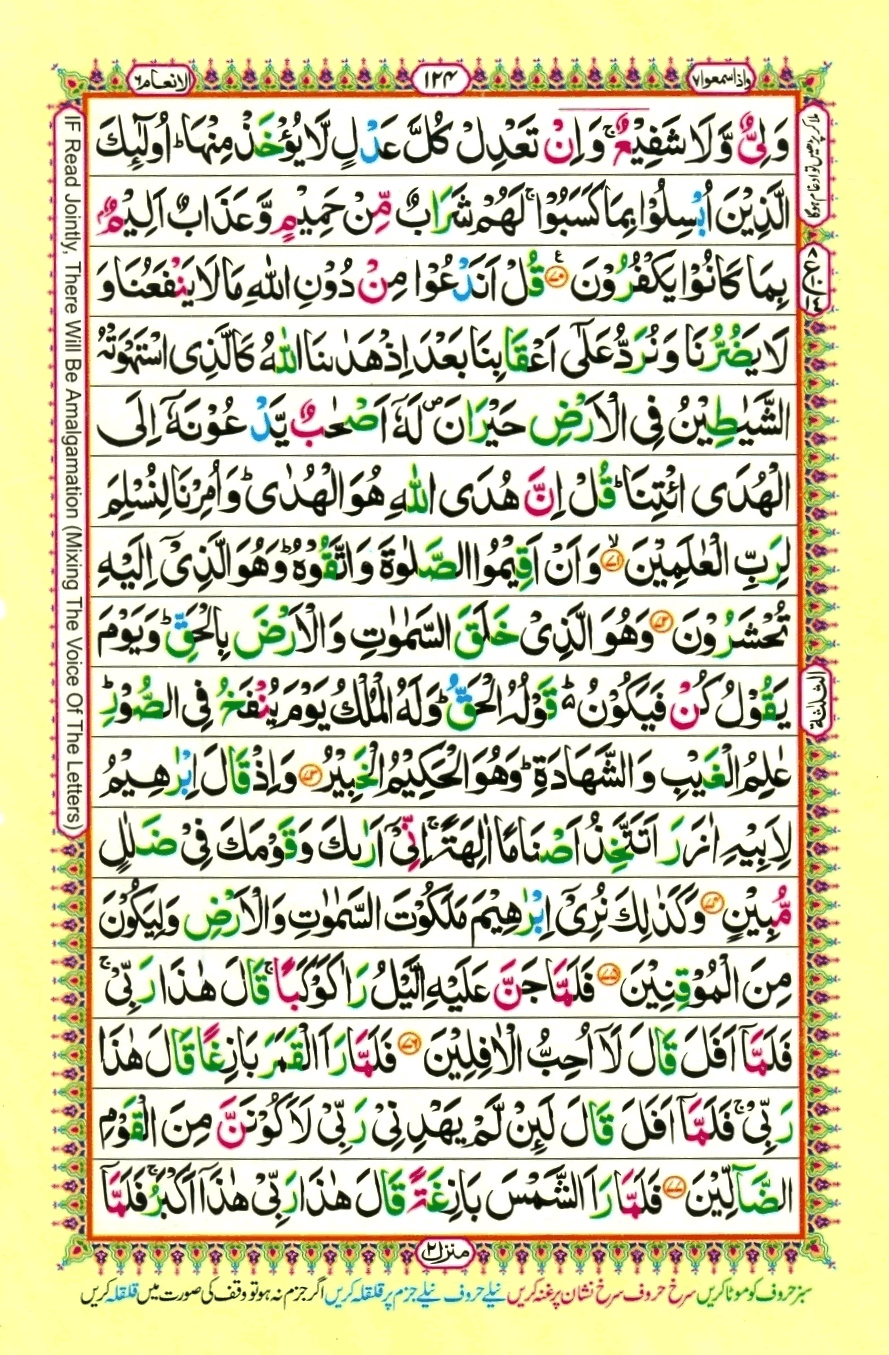 الانعام٦
١٢٤
واذاسمعوا٧
وَلِیٌّ وَّلَا شَفِیْعٌ ۚ وَاِنْ تَعْدِلْ كُلَّ عَدْلٍ لَّا یُؤْخَذْ مِنْهَا ؕ اُولٰٓئِكَ
الَّذِیْنَ اُبْسِلُوْا بِمَا كَسَبُوْا ۚ لَهُمْ شَرَابٌ مِّنْ حَمِیْمٍ وَّعَذَابٌ اَلِیْمٌۢ
بِمَا كَانُوْا یَكْفُرُوْنَ ﴿٧٠﴾ قُلْ اَنَدْعُوْا مِنْ دُوْنِ اللّٰهِ مَا لَا یَنْفَعُنَا وَ
لَا یَضُرُّنَا وَنُرَدُّ عَلٰۤی اَعْقَابِنَا بَعْدَ اِذْ هَدٰىنَا اللّٰهُ كَالَّذِی اسْتَهْوَتْهُ
الشَّیٰطِیْنُ فِی الْاَرْضِ حَیْرَانَ ۪ لَهٗۤ اَصْحٰبٌ یَّدْعُوْنَهٗۤ اِلَی
الْهُدَی ائْتِنَا ؕ قُلْ اِنَّ هُدَی اللّٰهِ هُوَ الْهُدٰی ؕ وَاُمِرْنَا لِنُسْلِمَ
لِرَبِّ الْعٰلَمِیْنَ ﴿٧١﴾ۙ وَاَنْ اَقِیْمُوا الصَّلٰوةَ وَاتَّقُوْهُ ؕ وَهُوَ الَّذِیْۤ اِلَیْهِ
تُحْشَرُوْنَ ﴿٧٢﴾ وَهُوَ الَّذِیْ خَلَقَ السَّمٰوٰتِ وَالْاَرْضَ بِالْحَقِّ ؕ وَیَوْمَ
یَقُوْلُ كُنْ فَیَكُوْنُ ؕ۬ قَوْلُهُ الْحَقُّ ؕ وَلَهُ الْمُلْكُ یَوْمَ یُنْفَخُ فِی الصُّوْرِ ؕ
عٰلِمُ الْغَیْبِ وَالشَّهَادَةِ ؕ وَهُوَ الْحَكِیْمُ الْخَبِیْرُ ﴿٧٣﴾ وَاِذْ قَالَ اِبْرٰهِیْمُ
لِاَبِیْهِ اٰزَرَ اَتَتَّخِذُ اَصْنَامًا اٰلِهَةً ۚ اِنِّیْۤ اَرٰىكَ وَقَوْمَكَ فِیْ ضَلٰلٍ
مُّبِیْنٍ ﴿٧٤﴾ وَكَذٰلِكَ نُرِیْۤ اِبْرٰهِیْمَ مَلَكُوْتَ السَّمٰوٰتِ وَالْاَرْضِ وَلِیَكُوْنَ
مِنَ الْمُوْقِنِیْنَ ﴿٧٥﴾ فَلَمَّا جَنَّ عَلَیْهِ الَّیْلُ رَاٰ كَوْكَبًا ۚ قَالَ هٰذَا رَبِّیْ ۚ
فَلَمَّاۤ اَفَلَ قَالَ لَاۤ اُحِبُّ الْاٰفِلِیْنَ ﴿٧٦﴾ فَلَمَّا رَاَ الْقَمَرَ بَازِغًا قَالَ هٰذَا
رَبِّیْ ۚ فَلَمَّاۤ اَفَلَ قَالَ لَئِنْ لَّمْ یَهْدِنِیْ رَبِّیْ لَاَكُوْنَنَّ مِنَ الْقَوْمِ
الضَّآلِّیْنَ ﴿٧٧﴾ فَلَمَّا رَاَ الشَّمْسَ بَازِغَةً قَالَ هٰذَا رَبِّیْ هٰذَاۤ اَكْبَرُ ۚ فَلَمَّاۤ
ملا کر پڑھیں تو ادغام ہوگا
الثلثة
IF Read Jointly, There Will Be Amalgamation (Mixing The Voice Of The Letters)
منزل٢
سبز حروف کو موٹا کریں سرخ حروف سرخ نشان پر غنہ کریں نیلے حروف نیلے جزم پر قلقلہ کریں اگر جزم نہ ہو تو وقف کی صورت میں قلقلہ کریں